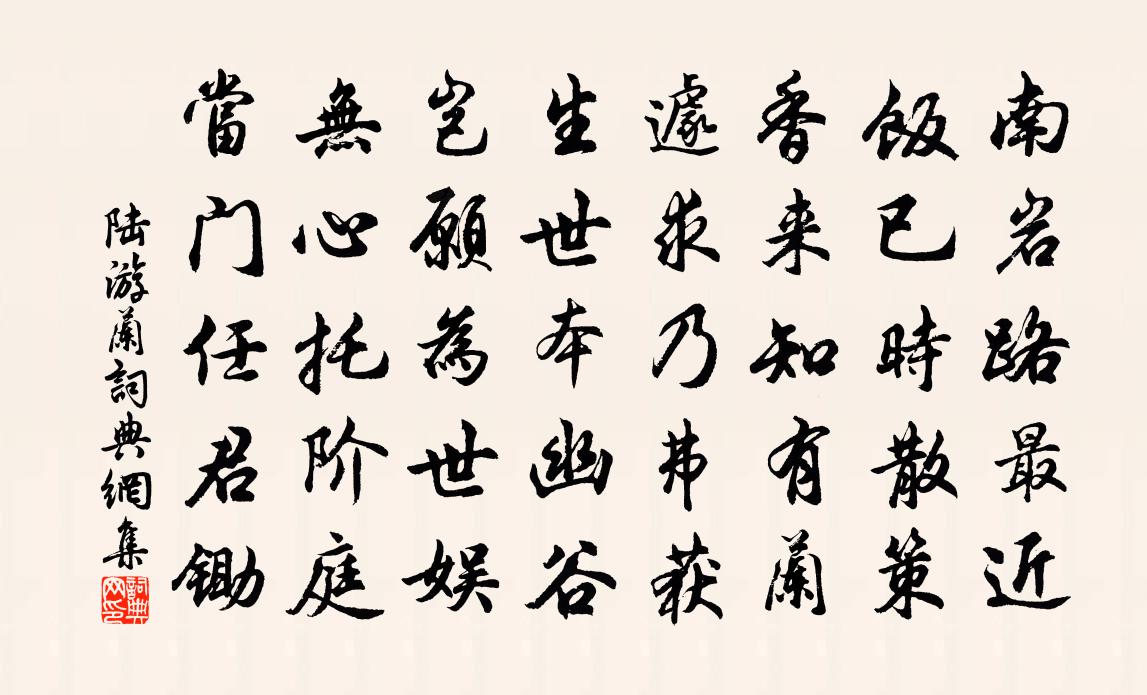 南岩路最近
飯已時散策
香来知有蘭
遽求乃弗获
生世本幽谷
岂願為世娱
無心托阶庭
當门任君锄
陆游蘭詞典網集
詞典网印